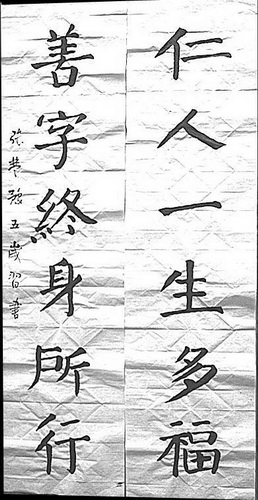 仁人一生多福
善字終身所行
五歲習書